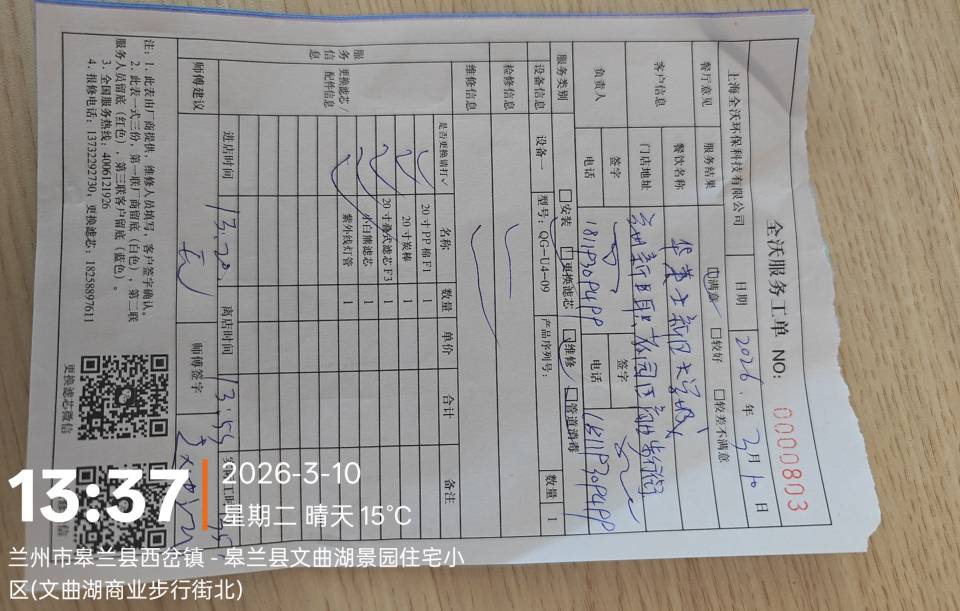 全沃服务工单 NO: 0000803
上海全沃环保科技有限公司 日期 2026 年 3月 10 日
餐厅意见 服务结果 满意 较好 较差不满意
客户信息 餐饮名称 华莱士新区大学城
门店地址
负责人 签字 签字
电话 电话
服务类别 安装 更换滤芯 维修 管道消毒
设备信息 设备一 型号: QG-U4-09 产品序列号: 数量 1
检修信息
维修信息
服务信息 更换滤芯/配件信息
是否更换请打✓ 名称 数量 单价 合计 备注
✓ 20寸PP棉F1 1
✓ 20寸炭棒 1
✓ 20寸叠式滤芯F3 1
✓ 小白熊滤芯 1
✓ 紫外线灯管 1
进店时间 13.20 离店时间 13.55
师傅建议 无 师傅签字
注: 1. 此表由厂商提供, 维修人员填写, 客户签字确认。
2. 此表一式三份, 第一联厂商留底 (白色), 第二联
服务人员留底 (红色), 第三联客户留底 (蓝色)。
3. 全国服务热线: 4006121926
4. 报修电话: 13732292730, 更换滤芯: 18258897611
更换滤芯微信
13:37
2026-3-10
星期二 晴天 15℃
兰州市皋兰县西岔镇 - 皋兰县文曲湖景园住宅小
区(文曲湖商业步行街北)